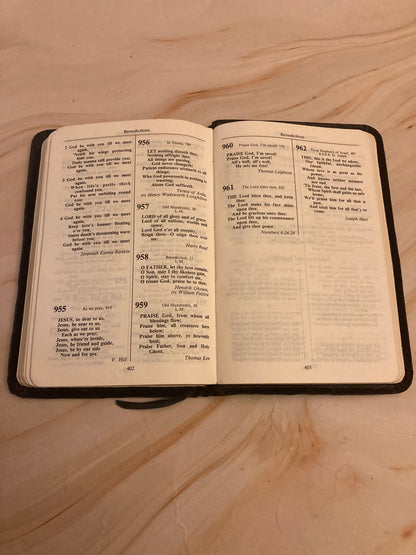 Benedictions
2 God be with you till we meet
again,
'Neath his wings protecting
hide you;
Daily manna still provide you;
God be with you till we meet
again.
3 God be with you till we meet
again,
When life's perils thick
confound you
Put his arm unfailing round
you;
God be with you till we meet
again.
4 God be with you till we meet
again,
Keep love's banner floating
o'er you,
Smite death's threatening wave
before you;
God be with you till we meet
again.
Jeremiah Eames Rankin
955 As we pray, 613
JESUS, so dear to us,
Jesus, be near to us,
Jesus, give ear to us
Each as we pray;
Jesus, whate'er betide,
Jesus, be friend and guide,
Jesus, be by our side
Now and for aye.
V. Hill
956
LET nothing disturb thee,
Nothing affright thee;
All things are passing,
God never changeth!
Patient endurance attaineth to all
things;
Who God possesseth in nothing is
wanting;
Alone God sufficeth.
Teresa of
tr Henry Wadsworth Longfellow
957 Old Hundredth,
L.M.
LORD of all glory and of grace,
Lord of all nations, worlds and
space,
Lord God o'er all eternity,
Reign thou–O reign thou over
me.
Harry Read
958 Benediction,
L.M.
O FATHER, let thy love remain,
O Son, may I thy likeness gain,
O Spirit, stay to comfort me,
O triune God, praise be to thee.
Hendrik Ghysen
tre William Pieters
959 Old Hundredth,
L.M.
PRAISE God, from whom all
blessings flow;
Praise him, all creatures here
below;
Praise him above, ye heavenly
host;
Praise Father, Son and Holy
Ghost.
Thomas Ken
402
Benedictions
960 Praise God, I'm saved!
PRAISE God, I'm saved!
Praise God, I'm saved!
All's well, all's well,
He sets me free!
Thomas Leighton
961 The Lord bless thee,
THE Lord bless thee, and keep
thee;
The Lord make his face shine
upon thee,
And be gracious unto thee;
The Lord lift up his countenance
upon thee,
And give thee peace.
Numbers 6:24-26
962 Thou Shepherd of Israel,
THIS, this is the God we adore,
Our faithful, unchangeable
friend,
Whose love is as great as his
power,
And neither knows measure
nor end.
'Tis Jesus, the first and the last,
Whose Spirit shall guide us safe
home;
We'll praise him for all that is
past,
And trust him for all that's to
come.
Joseph Hart
403